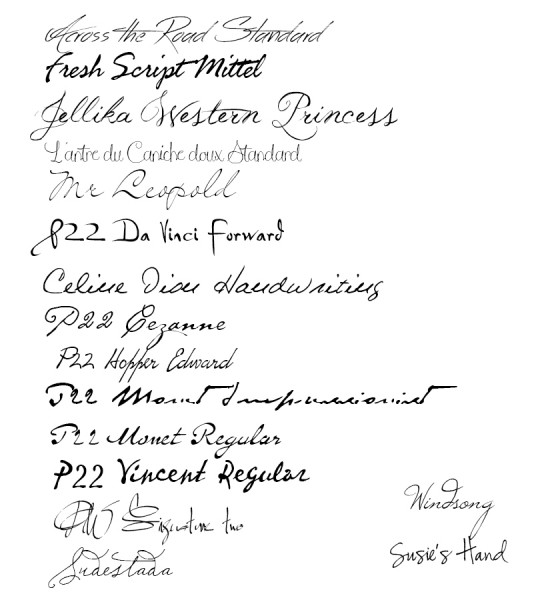 Across the Road Standard
Fresh Script Mittel
Jellika Western Princess
L'antre du Caniche doux Standard
Mr Leopold
P22 Da Vinci Forward
Celine Dion Handwriting
P22 Cezanne
P22 Hopper Edward
P22 Monet Impressionist
P22 Monet Regular
P22 Vincent Regular
PW Signature two
Sudestada
Windsong
Susie's Hand